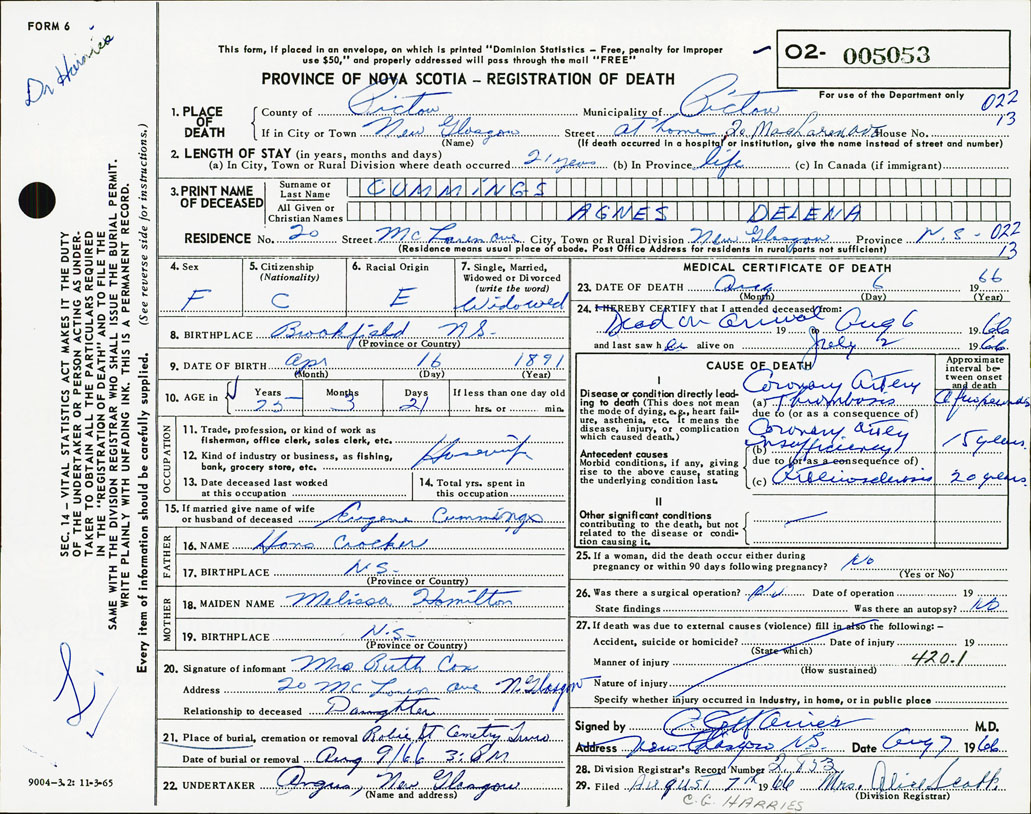 FORM 6
Dr Harries
This form, if placed in an envelope, on which is printed "Dominion Statistics – Free, penalty for improper
use $50," and properly addressed will pass through the mail "FREE"
PROVINCE OF NOVA SCOTIA – REGISTRATION OF DEATH
02- 005053
For use of the Department only
022
13
1. PLACE OF DEATH
County of Pictou Municipality of Pictou
If in City or Town New Glasgow Street at home 20 MacLaren Ave House No.
(Name) (If death occurred in a hospital or institution, give the name instead of street and number)
2. LENGTH OF STAY (in years, months and days)
(a) In City, Town or Rural Division where death occurred 21 years (b) In Province life (c) In Canada (if immigrant)
3. PRINT NAME OF DECEASED
Surname or Last Name CUMMINGS
All Given or Christian Names AGNES DELENA
RESIDENCE No. 20 Street McLaren Ave City, Town or Rural Division New Glasgow Province N.S- 022
(Residence means usual place of abode. Post Office Address for residents in rural parts not sufficient) 13
4. Sex F
5. Citizenship (Nationality) C
6. Racial Origin E
7. Single, Married, Widowed or Divorced (write the word) Widowed
8. BIRTHPLACE Brookfield N.S-
(Province or Country)
9. DATE OF BIRTH Apr 16 1891
(Month) (Day) (Year)
10. AGE in Years 75 Months 3 Days 21 If less than one day old hrs. or min.
OCCUPATION
11. Trade, profession, or kind of work as fisherman, office clerk, sales clerk, etc.
12. Kind of industry or business, as fishing, bank, grocery store, etc.
Housewife
13. Date deceased last worked at this occupation
14. Total yrs. spent in this occupation
15. If married give name of wife or husband of deceased Eugene Cummings
FATHER
16. NAME Hans Crocker
17. BIRTHPLACE N.S-
(Province or Country)
MOTHER
18. MAIDEN NAME Melissa Hamilton
19. BIRTHPLACE N.S-
(Province or Country)
20. Signature of informant Mrs Ruth Cox
Address 20 McLaren Ave N. Glasgow
Relationship to deceased Daughter
21. Place of burial, cremation or removal Robie St Cemetry Truro
Date of burial or removal Aug 9/66 3:PM
22. UNDERTAKER Angus, New Glasgow
(Name and address)
MEDICAL CERTIFICATE OF DEATH
23. DATE OF DEATH Aug 6 1966
(Month) (Day) (Year)
24. I HEREBY CERTIFY that I attended deceased from:
Dead on arrival 19 Aug 6 1966
and last saw her alive on July 2 1966
CAUSE OF DEATH
Approximate interval between onset and death
I
Disease or condition directly leading to death (This does not mean the mode of dying, e.g., heart failure, asthenia, etc. It means the disease, injury, or complication which caused death.)
Coronary Artery
(a) Thrombosis A few seconds
due to (or as a consequence of)
Coronary Artery
(b) insufficiency 15 years
due to (or as a consequence of)
Antecedent causes
Morbid conditions, if any, giving rise to the above cause, stating the underlying condition last.
(c) Arteriosclerosis 20 years
II
Other significant conditions contributing to the death, but not related to the disease or condition causing it.
25. If a woman, did the death occur either during
pregnancy or within 90 days following pregnancy? No
(Yes or No)
26. Was there a surgical operation? No Date of operation 19
State findings Was there an autopsy? No
27. If death was due to external causes (violence) fill in also the following: –
Accident, suicide or homicide? Date of injury 19
(State which)
Manner of injury 420.1
(How sustained)
Nature of injury
Specify whether injury occurred in Industry, in home, or in public place
Signed by M.D.
Address New Glasgow NS Date Aug 7 1966
28. Division Registrar's Record Number
29. Filed August 7th 1966 Mrs. Alice Scott
(Division Registrar)
C.G. HARRIES
SEC. 14 – VITAL STATISTICS ACT MAKES IT THE DUTY
OF THE UNDERTAKER OR PERSON ACTING AS UNDER-
TAKER TO OBTAIN ALL THE PARTICULARS REQUIRED
IN THE "REGISTRATION OF DEATH" AND TO FILE THE
SAME WITH THE DIVISION REGISTRAR WHO SHALL ISSUE THE BURIAL PERMIT.
WRITE PLAINLY WITH UNFADING INK. THIS IS A PERMANENT RECORD.
Every item of information should be carefully supplied. (See reverse side for instructions.)
9004-3.2: 11-3-65